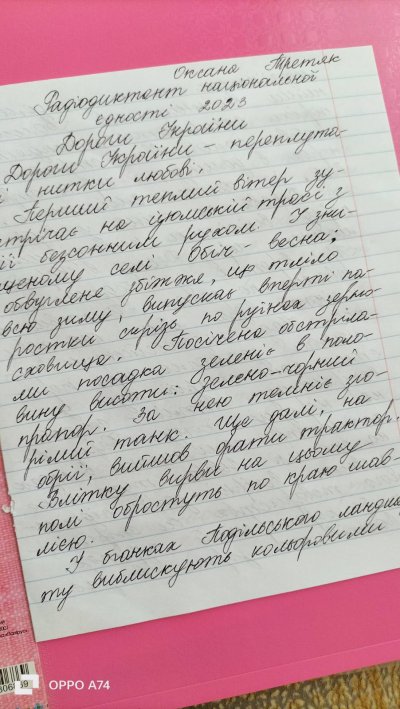 Оксана Третяк
Радіодиктант національної
єдності 2023
Дороги України
Дороги України – переплута-
і нитки любові.
Перший теплий вітер зу-
стрічає на ізюмській трасі з
її безсонним рухом. У зни-
щеному селі обіч - весна:
обвуглене збіжжя, що тліло
всю зиму, випускає вперті па-
ростки скрізь по руїнах зерно-
сховища. Посічена обстріла-
ми посадка зеленіє в поло-
вину висоти: зелено-чорний
прапор. За нею темніє зго-
рілий танк. Ще далі, на
обрії, вийшов орати трактор.
Влітку вирви на цьому
полі обростуть по краю шав-
лією.
У бганках Подільського
ту виблискують кольоровими
OPPO A74